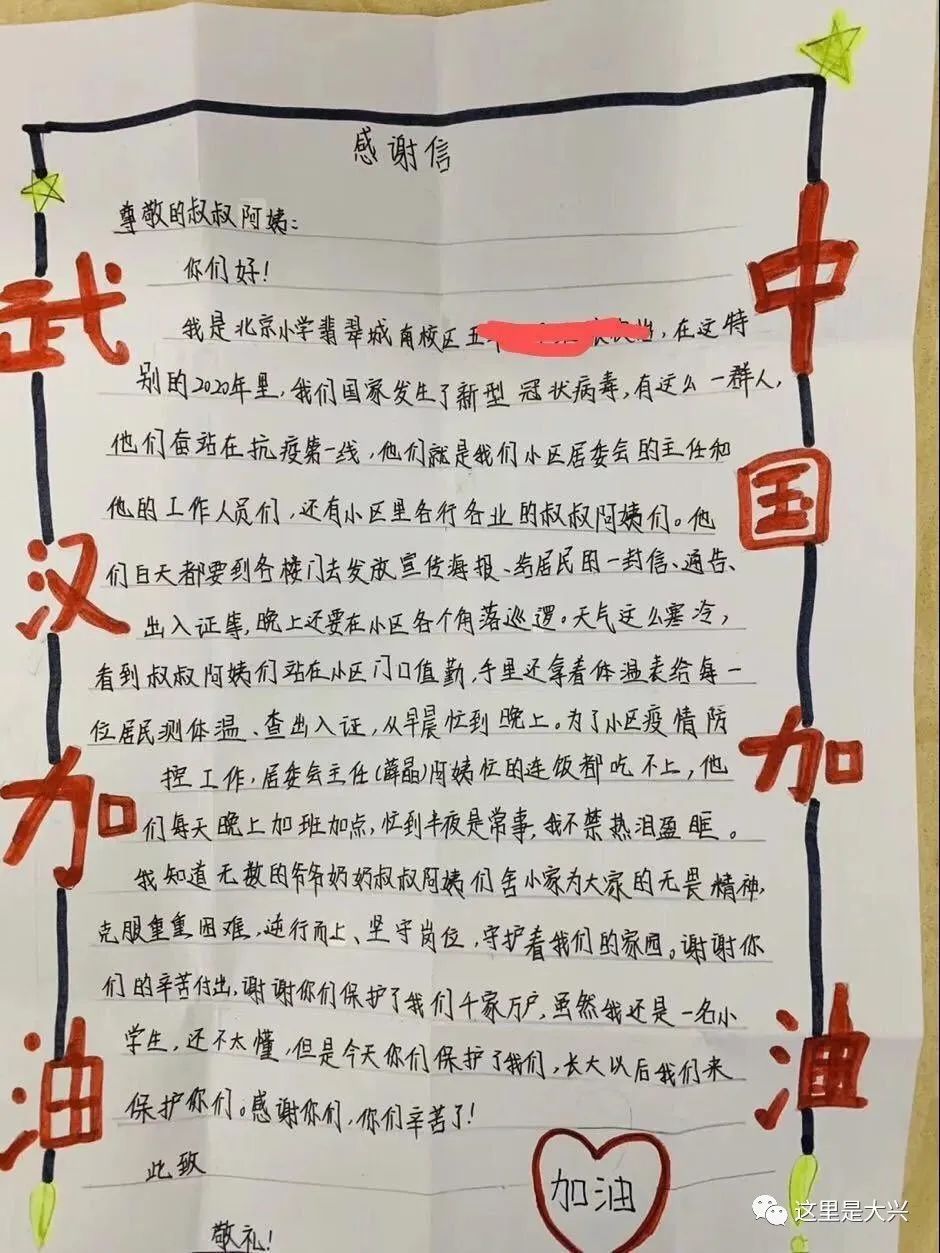 感谢信
尊敬的叔叔阿姨：
你们好！
我是北京小学翡翠城南校区五，在这特
别的2020年里，我们国家发生了新型冠状病毒，有这么一群人，
他们奋站在抗疫第一线，他们就是我们小区居委会的主任和
他的工作人员们，还有小区里各行各业的叔叔阿姨们。他
们白天都要到各楼门去发放宣传海报、给居民的一封信、通告、
出入证等，晚上还要在小区各个角落巡逻。天气这么寒冷，
看到叔叔阿姨们站在小区门口值勤，手里还拿着体温表给每一
位居民测体温、查出入证，从早晨忙到晚上。为了小区疫情防
控工作，居委会主任(薛晶)阿姨忙的连饭都吃不上，他
们每天晚上加班加点，忙到半夜是常事，我不禁热泪盈眶。
我知道无数的爷爷奶奶叔叔阿姨们舍小家为大家的无畏精神，
克服重重困难，逆行而上、坚守岗位，守护着我们的家园。谢谢你
们的辛苦付出，谢谢你们保护了我们千家万户，虽然我还是一名小
学生，还不太懂，但是今天你们保护了我们，长大以后我们来
保护你们。感谢你们，你们辛苦了！
此致
敬礼！
武汉加油
中国加油
加油
这里是大兴